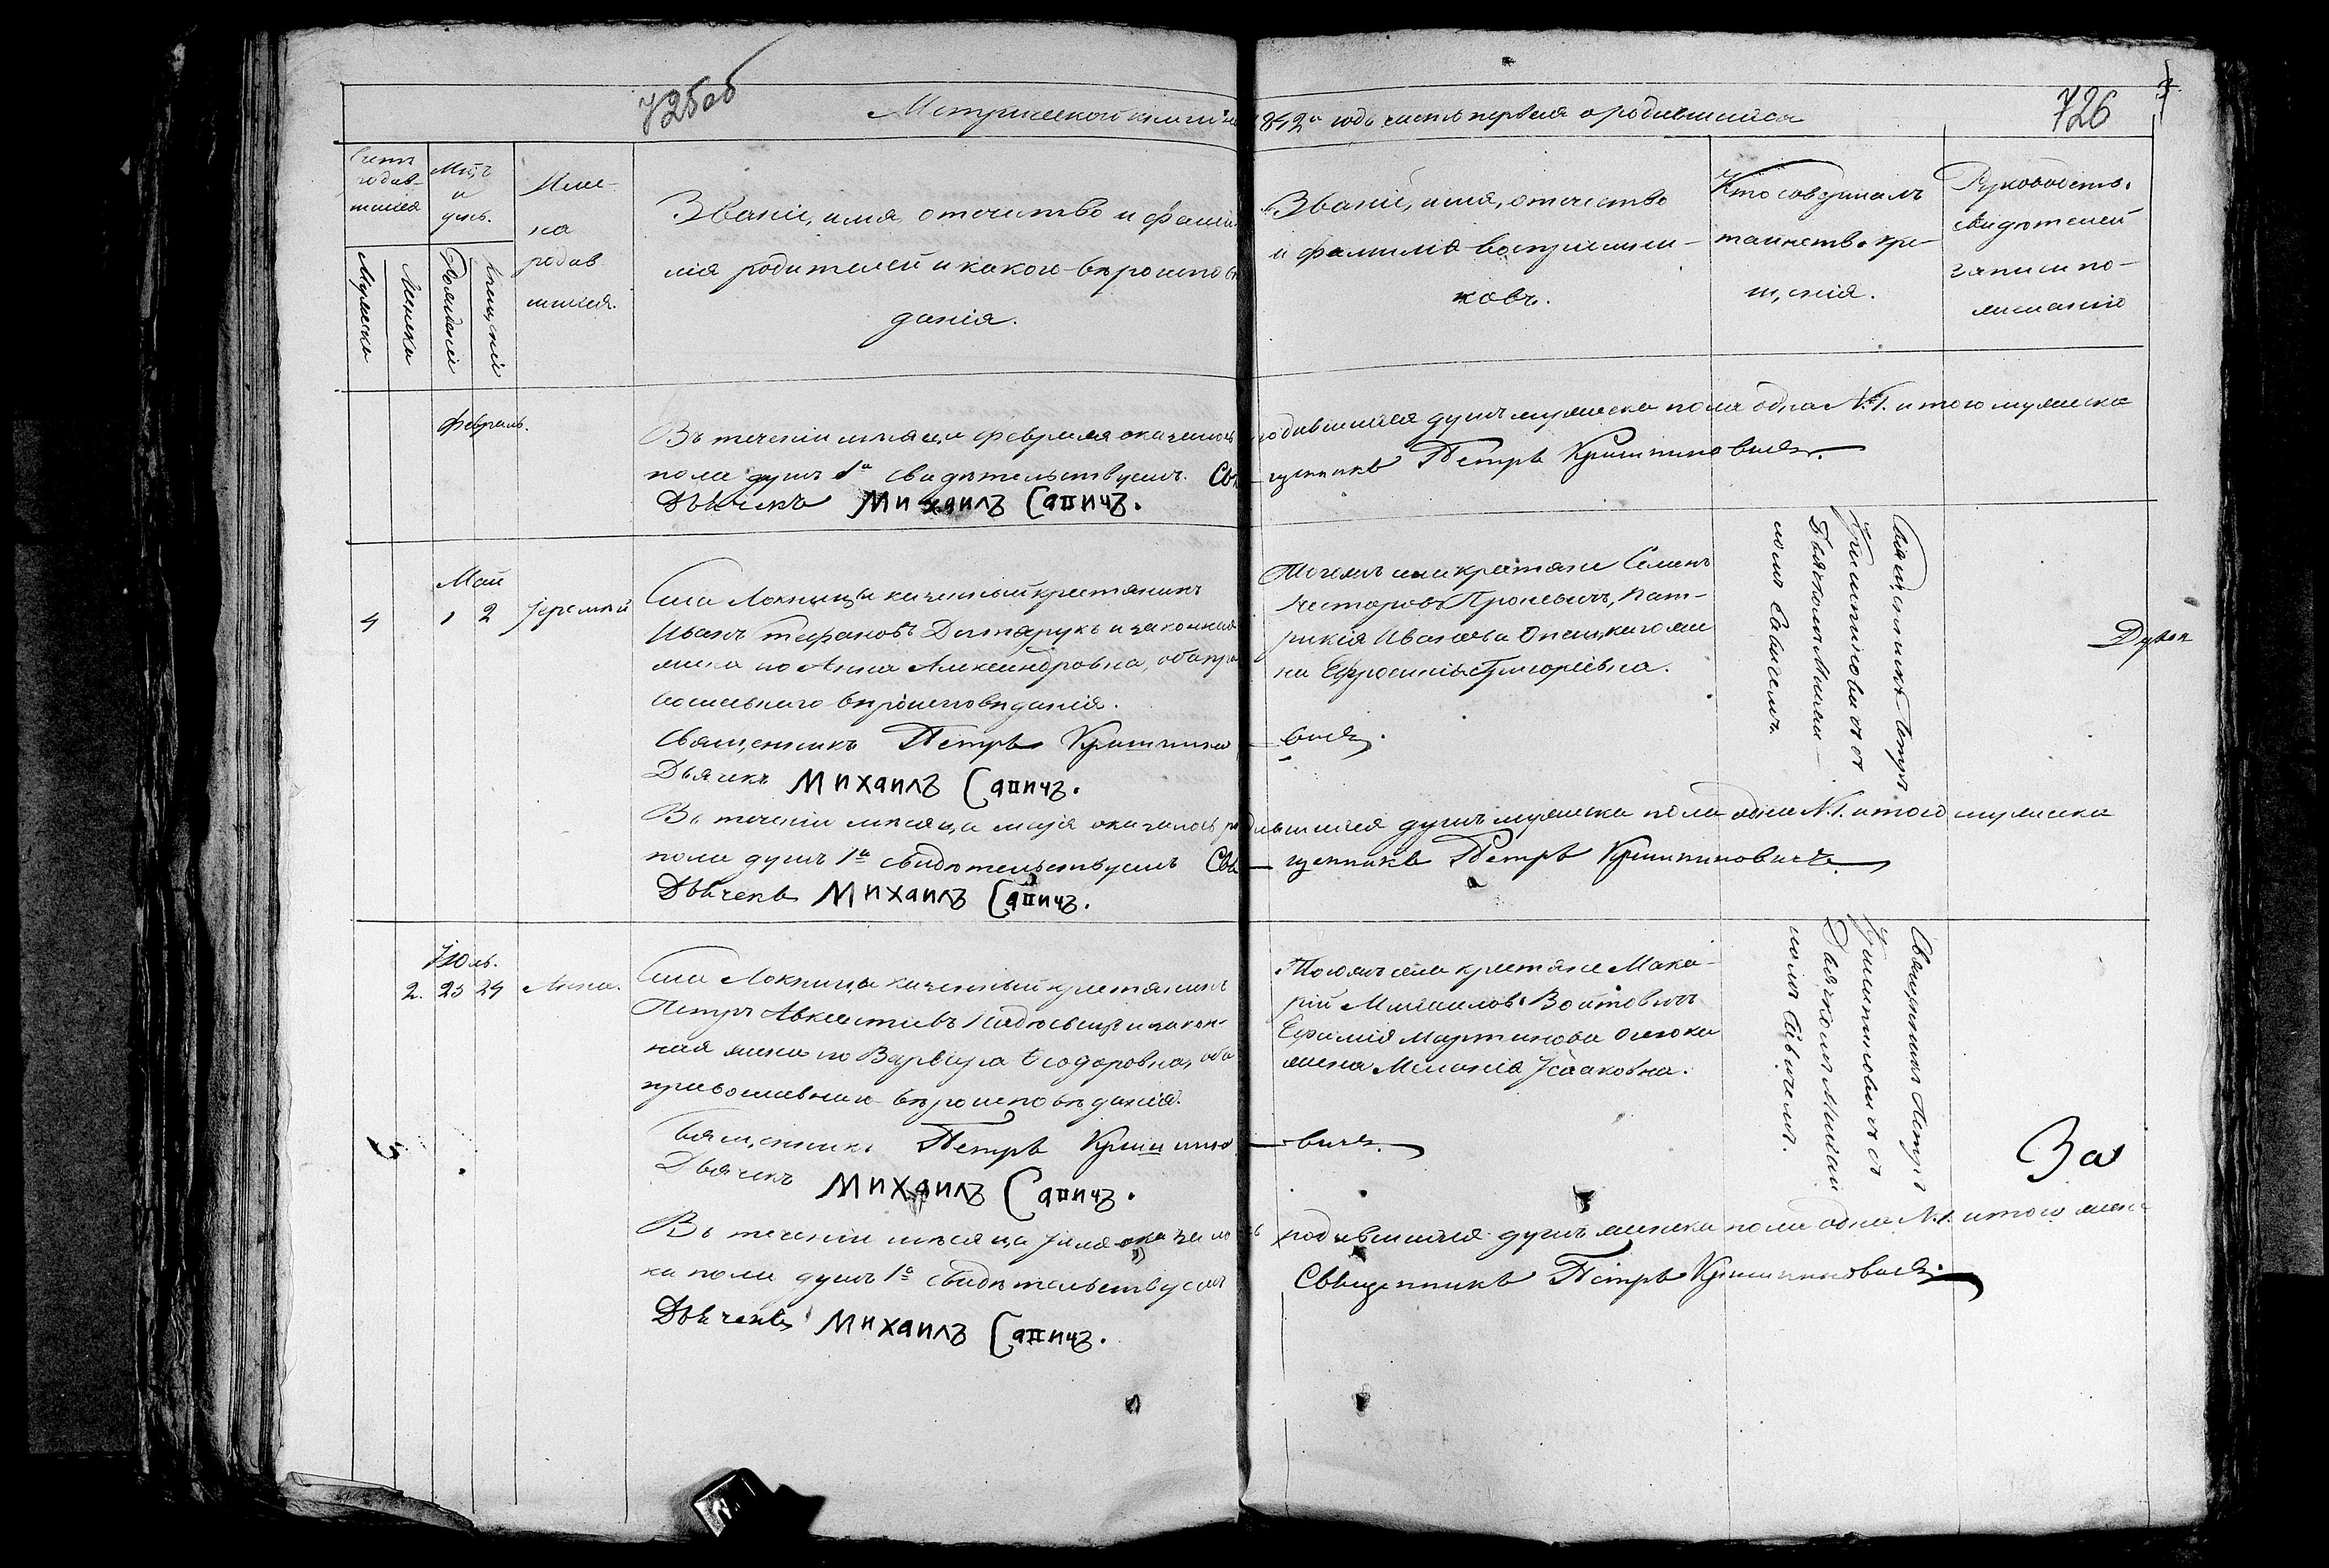 725 об
Метрической книги на 1842й годъ часть первая о родившихся
726
3
Счетъ родив-шихся
Мѣс-цъ и день.
Име-на родив шихся.
Званіе, имя, отечество и фами
лія родителей и какого вѣроиспове
данія.
Званіе, имя, отечество
и фамилія воспріемни-
ковъ.
Кто совершалъ
таинство кре-
щенія.
Рукоприкладство
свидѣтелей
записи по-
желанію
Мужеска
Женска
Рожденія
Крещенія
Февраль.
Въ теченіи мѣсяца февраля оказалось родившихся душъ мужеска пола одна N.1. итого мужеска
пола душъ 1а свидѣтельствуемъ. Священникъ Петръ Криштиновичъ.
Дьячекъ Михаилъ Савичъ.
Май
4 1 2 Іеремій
Села Локницы казенный крестянинъ
Иванъ Стефановъ Дитярукъ и законная
жена его Анна Александровна, оба пра
вославнаго вѣроисповѣданія.
Священникъ Петръ Криштиновичъ.
Дьячекъ Михаилъ Савичъ.
Тогожъ села крестяне Семенъ
Несторовъ Проневичъ, Пат-
рикія Иванова жена
Ефросинія Григоріевна.
Священникъ Петръ
Криштиновичъ съ
Дьячкомъ Михаи-
ломъ Савичемъ
Въ теченіи мѣсяца маія оказалось родившихся душъ мужеска пола одна N.1. итого мужеска
пола душъ 1а свидѣтельствуемъ Священникъ Петръ Криштиновичъ
Дьячекъ Михаилъ Савичъ.
Іюль.
2. 23 24 Анна.
Села Локницы казенный крестянинъ
Петръ Авксентіевъ и закон-
ная жена его Варвара Ѳеодоровна, оба
православнаго вѣроисповѣданія.
Священникъ Петръ Криштиновичъ.
Дьячекъ Михаилъ Савичъ.
Тогожъ села крестяне Мака-
рій Михаиловъ Войтовичъ
Ефимія Мартинова
жена Меланія Ісааковна.
Священникъ Петръ
Криштиновичъ съ
Дьячкомъ Михаи
ломъ Савичемъ.
За
Въ теченіи мѣсяца Іюля оказалось родившихся душъ женска пола одна N.1. итого жен-
ска пола душъ 1а свидѣтельствуемъ Священникъ Петръ Криштиновичъ.
Дьячекъ Михаилъ Савичъ.